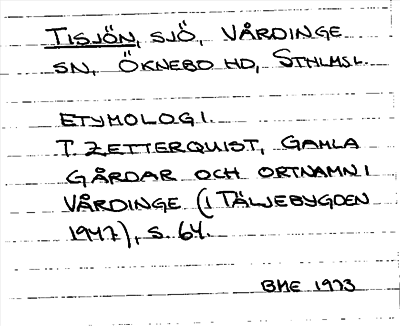 TISJÖN, SJÖ, VÅRDINGE
SN, ÖKNEBO HD, STHLMSL.
ETYMOLOGI.
T. ZETTERQUIST, GAMLA
GÅRDAR OCH ORTNAMN I
VÅRDINGE (I TÄLJEBYGDEN
1947), S. 64.
BME 1973